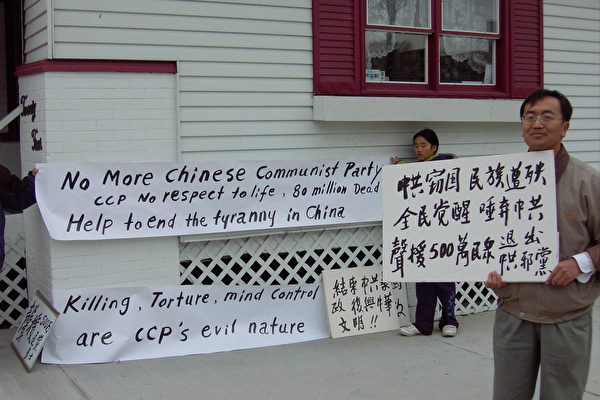 No More Chinese Communist Party
CCP No respect to life, 80 million Dead
Help to end the tyranny in China
中共窃国 民族遭殃
全民觉醒 唾弃中共
聲援500萬民眾 退出
中共邪黨
Killing, Torture, mind Control
are CCP's evil nature
结束中共
政
文明!!